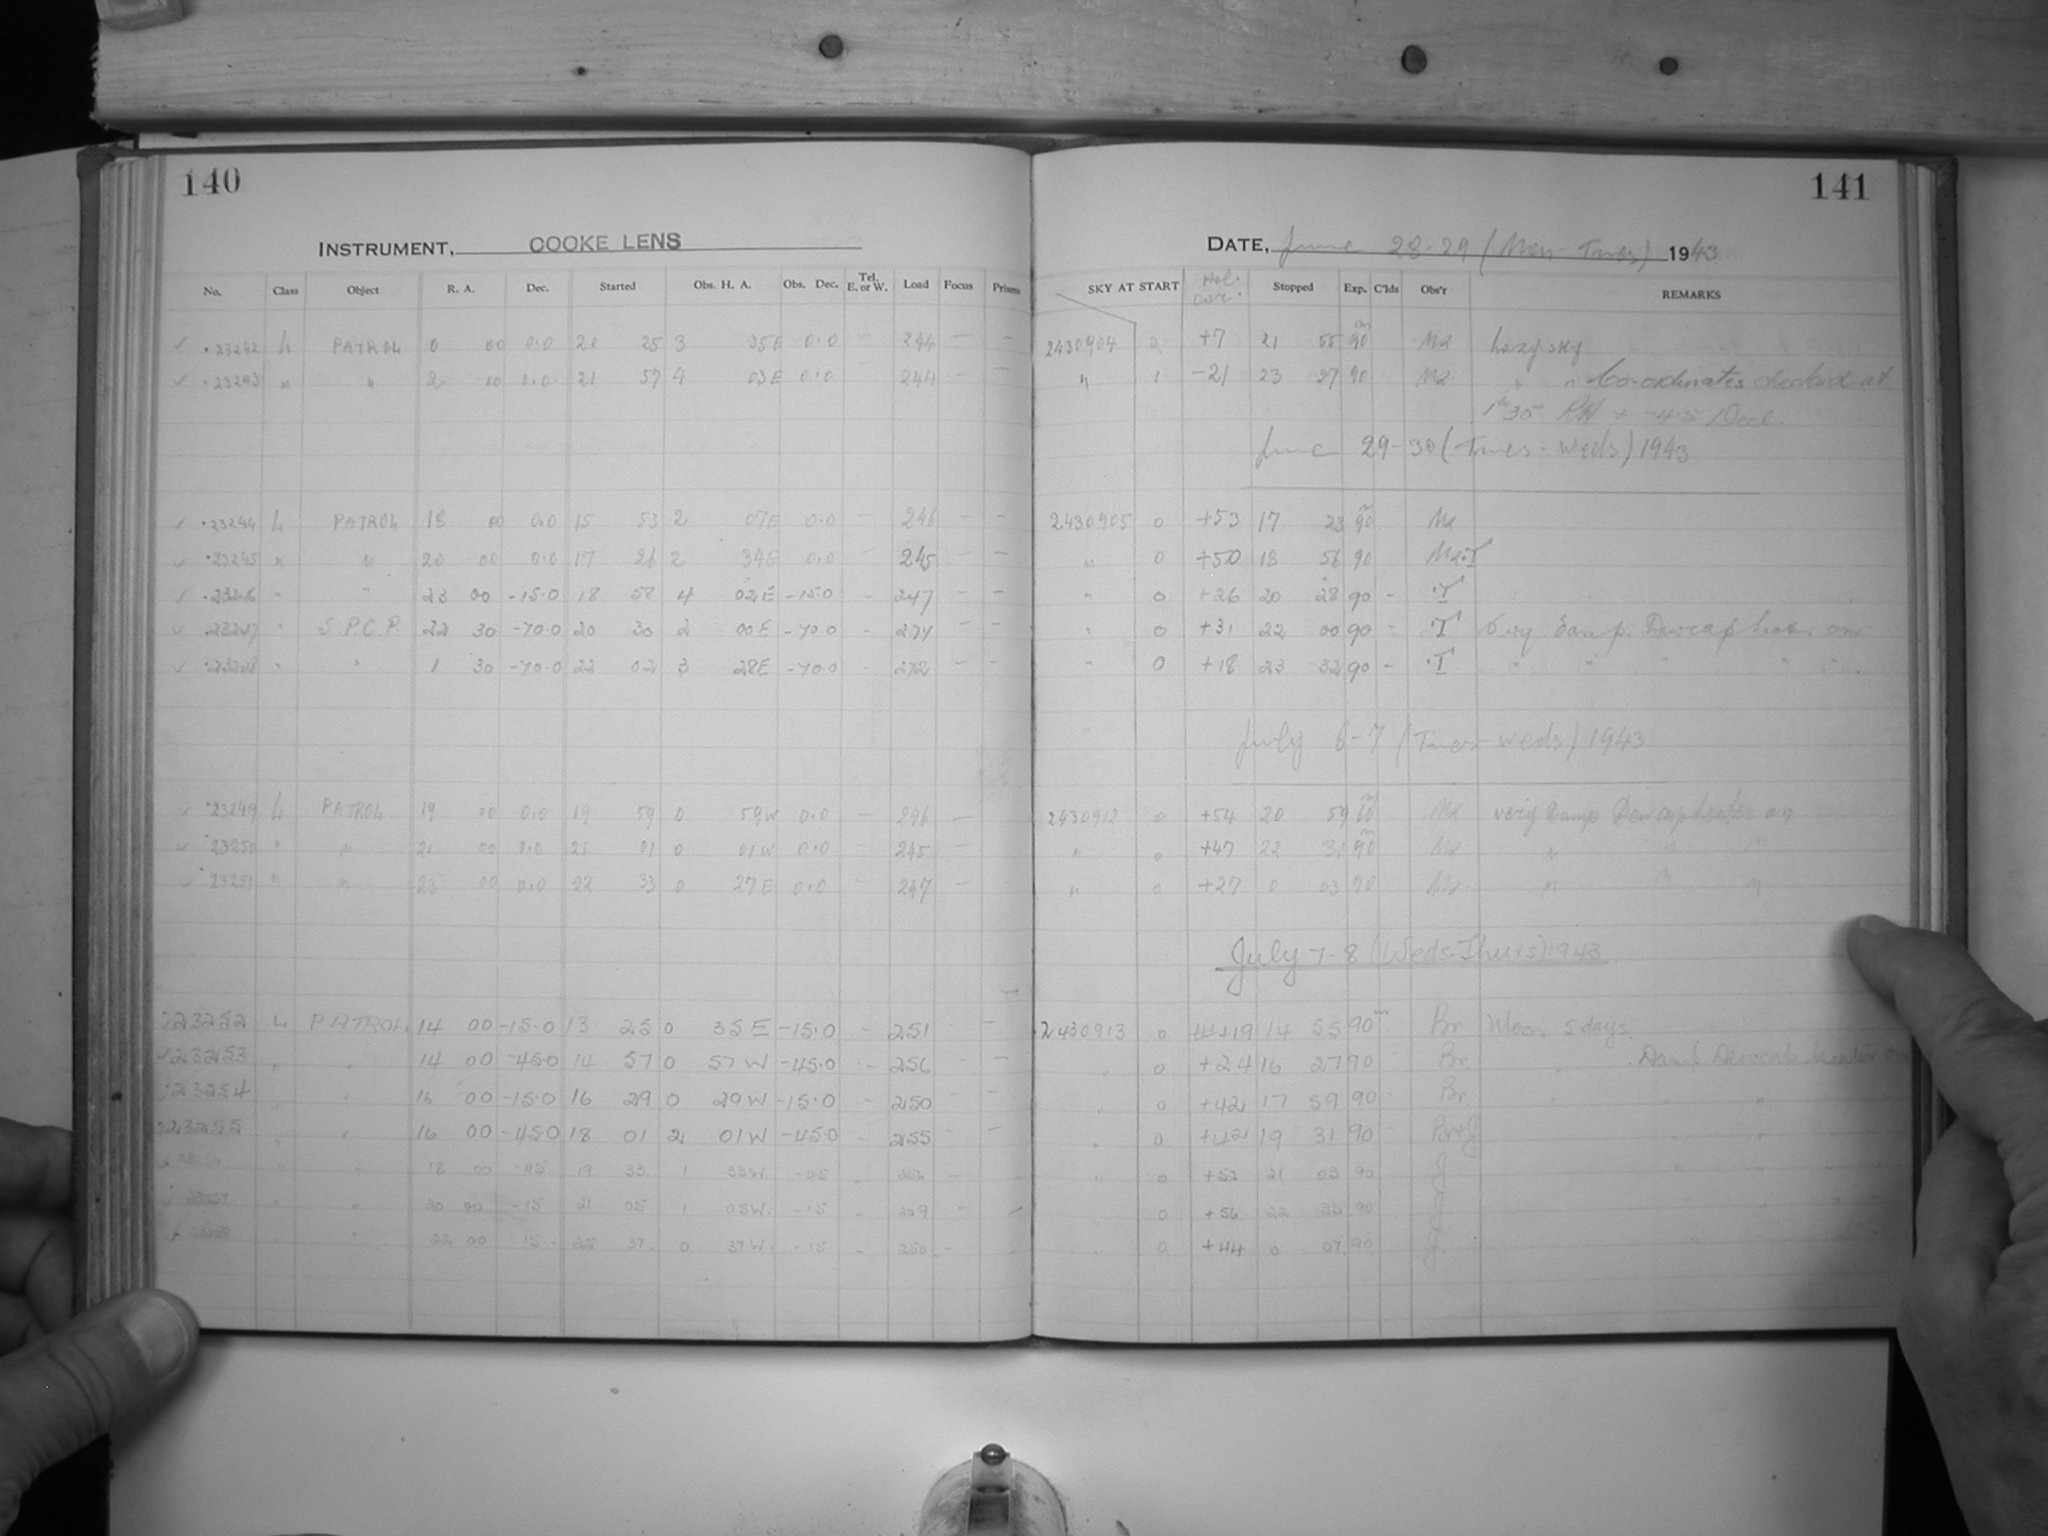 140
INSTRUMENT, COOKE LENS
No. Class Object R. A. Dec. Started Obs. H. A. Obs. Dec. Tel. E. or W. Load Focus Prisms
23242 L PATROL 0 00 0.0 20 25 3 35E 0.0 - 244 - -
23243 " " 2 00 0.0 21 57 4 03E 0.0 - 244 - -
23244 L PATROL 18 00 0.0 15 53 2 07E 0.0 - 246 - -
23245 " " 20 00 0.0 17 26 2 34E 0.0 - 245 - -
23246 " " 23 00 -15.0 18 58 4 02E -15.0 - 247 - -
23247 " S.P.C.P. 22 30 -70.0 20 30 2 00E -70.0 - 274 - -
23248 " " 1 30 -70.0 22 02 3 28E -70.0 - 272 - -
23249 L PATROL 19 00 0.0 19 59 0 59W 0.0 - 246 -
23250 " " 21 00 0.0 21 01 0 01W 0.0 - 245 -
23251 " " 23 00 0.0 22 33 0 27E 0.0 - 247 -
23252 L PATROL 14 00 -15.0 13 25 0 35E -15.0 - 251 - -
23253 " " 14 00 -45.0 14 57 0 57W -45.0 - 256 - -
23254 " " 16 00 -15.0 16 29 0 29W -15.0 - 250 - -
23255 " " 16 00 -45.0 18 01 2 01W -45.0 - 255 - -
" " 18 00 -45 19 33 1 33W -45 - - -
23257 " " 20 00 -15 21 05 1 05W -15 - - -
23258 " " 22 00 -15 22 37 0 37W -15 - 250 - -
141
DATE, June 28-29 (Mon-Tues) 1943
SKY AT START Stopped Exp. C'lds Obs'r REMARKS
2430904 2 +7 21 55 90 hazy sky
" 1 -21 23 27 90 " " Co-ordinates checked at
1h 30m RA + -4.5 Decl.
June 29-30 (Tues-Weds) 1943
2430905 0 +53 17 23 90
" 0 +50 18 56 90
" 0 +26 20 28 90 - T
" 0 +31 22 00 90 - T Very Damp. Dewcap heater on
" 0 +18 23 32 90 - T " " " " "
July 6-7 (Tues-Weds) 1943
2430912 0 +54 20 59 60 very Damp Dewcap heater on
" 0 +47 22 31 90 " " "
" 0 +27 0 03 90 " " "
July 7-8 (Weds-Thurs) 1943
2430913 0 +19 14 55 90m Br Moon 5 days.
" 0 +24 16 27 90 Br " Damp Dewcap heater on
" 0 +42 17 59 90 Br " " "
" 0 +42 19 31 90 Br+J
" 0 +52 21 03 90 J
" 0 +56 22 35 90 J
" 0 +44 0 07 90 J